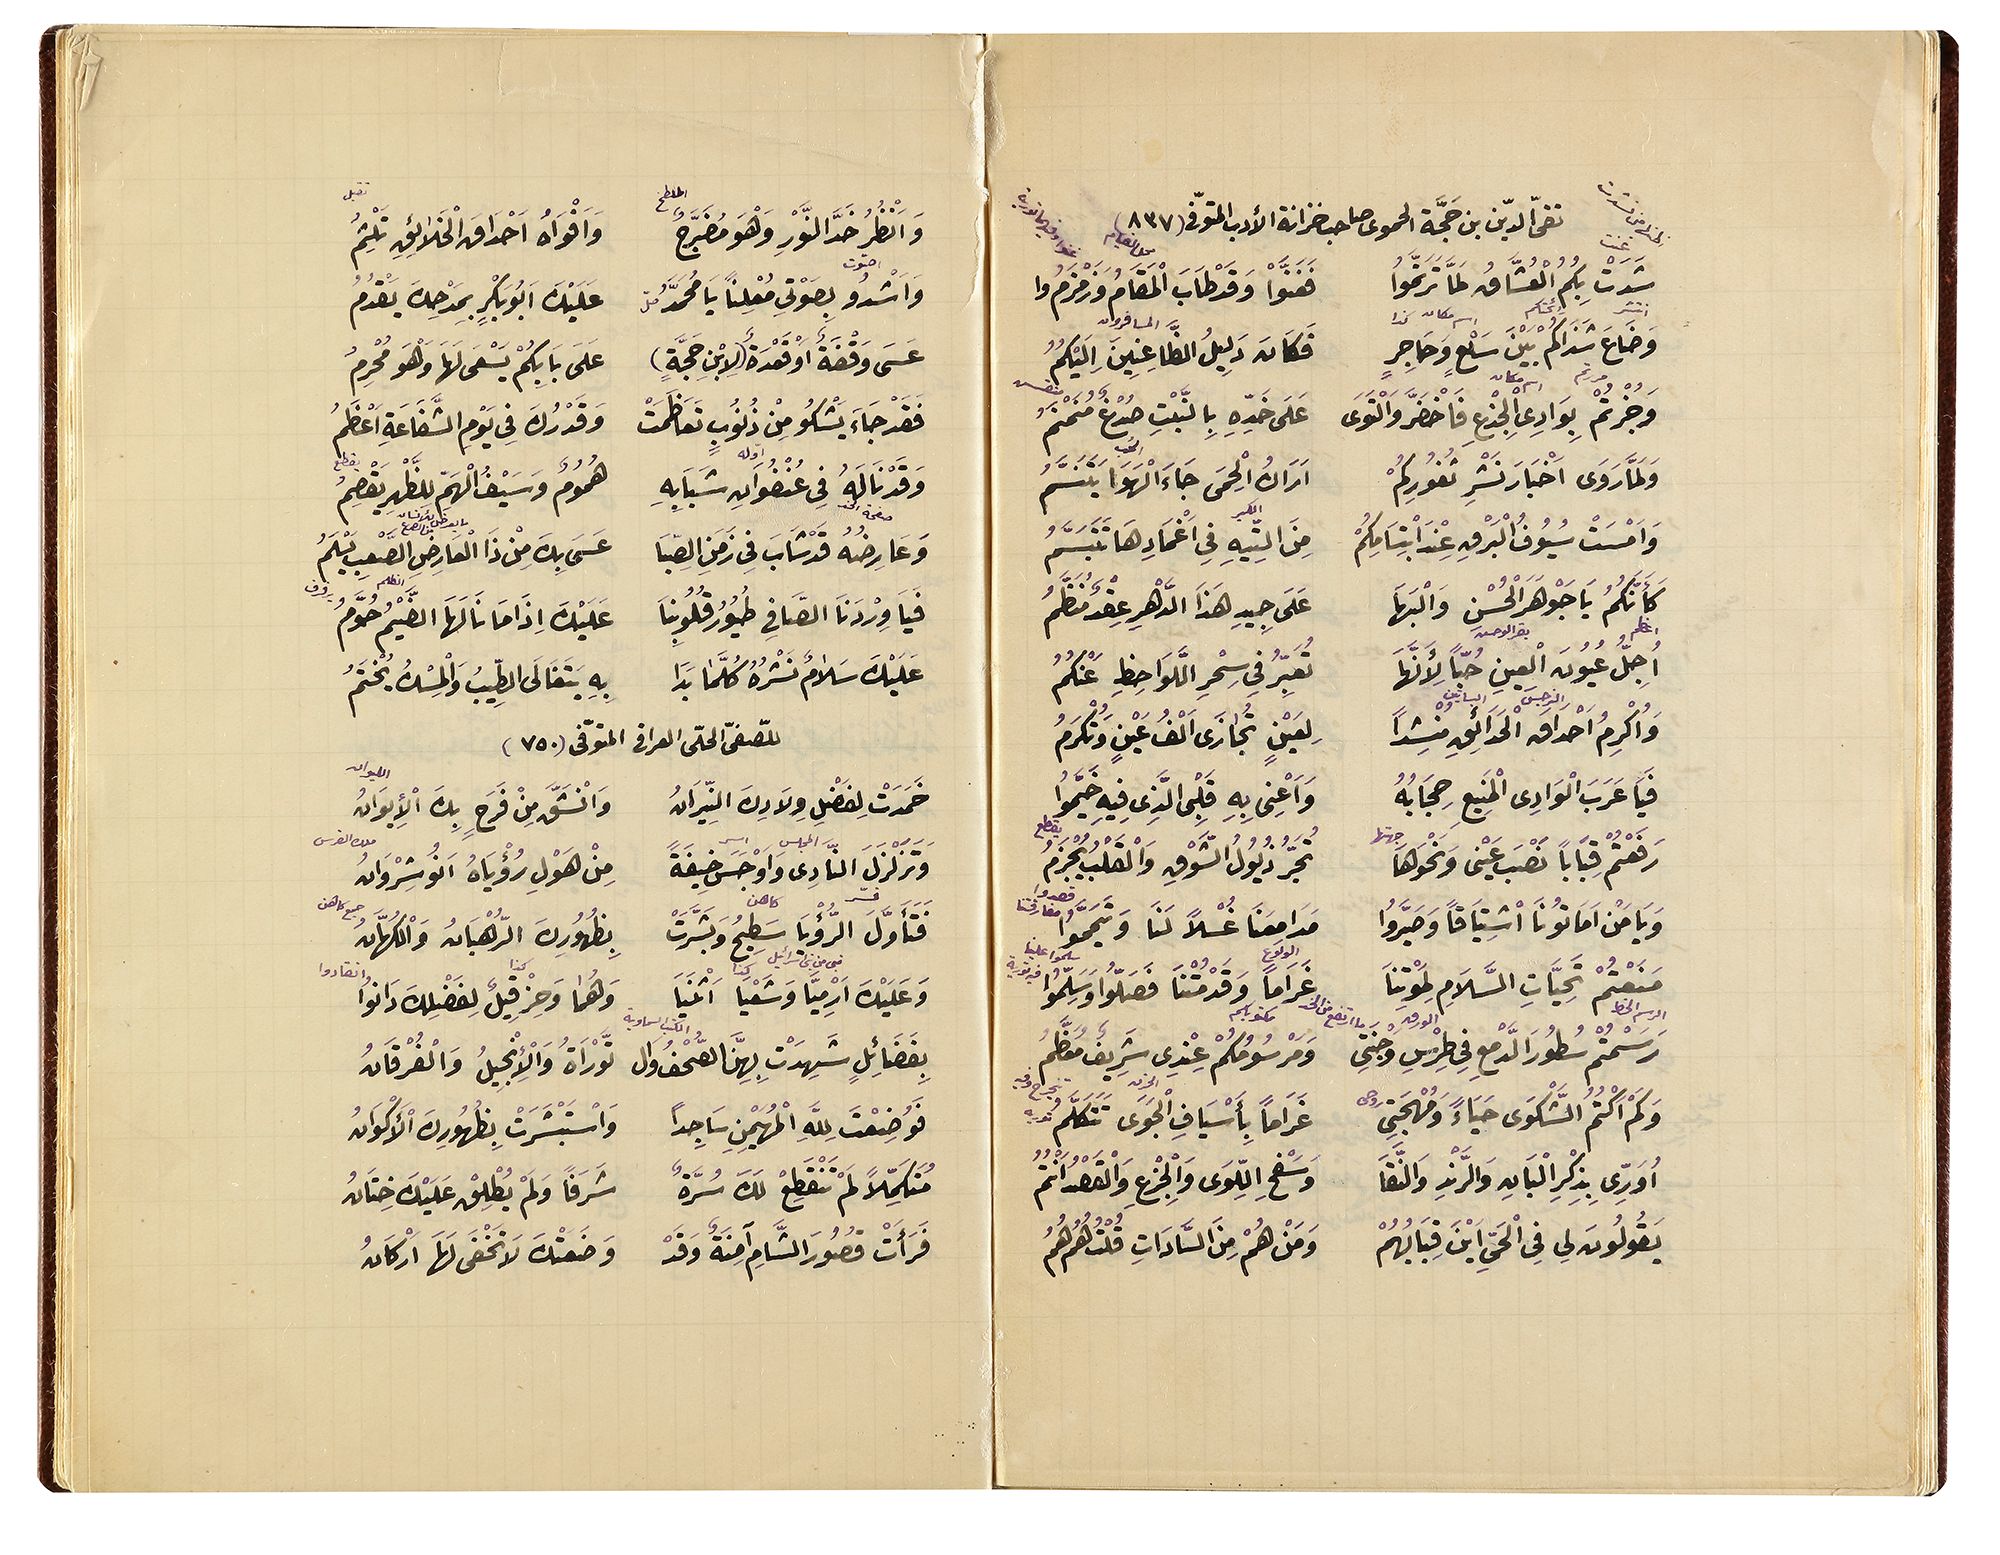 تقيّ الدّين بن حَجَّة الحموى صاحب خزانة الأدب المتوفّى (٨٣٧)
شَدَتْ بِكُمُ الْعُشَّاقُ لَمَّا تَرَنَّمُوا فَغَنَّوْا وَقَدْ طَابَ الْمَقَامُ وَزَمْزَمُوا
وَضَاعَ شَذَاكُمْ بَيْنَ سَلْعٍ وَحَاجِرٍ فَكَانَ دَلِيلُ الظَّاعِنِينَ اِلَيْكُمُ
وَجُزْتُمْ بِوَادِى الْجِزْعِ فَاخْضَرَّ وَالْتَوَى عَلَى خَدِّهِ بِالنَّبْتِ صُدْغٌ مُنَمْنَمُ
وَلَمَّا رَوَى اَخْبَارَ نَشْرِ ثُغُورِكُمْ اَرَاكُ الْحِمَى جَاءَ الْهَوَا يَتَنَسَّمُ
وَاَمْسَتْ سُيُوفُ الْبَرْقِ عِنْدَ ابْتِسَامِكُمْ مِنَ التِّيهِ فِى اَغْمَادِهَا تَتَبَسَّمُ
كَأَنَّكُمُ يَا جَوْهَرَ الْحُسْنِ وَالْبَهَا عَلَى جِيدِ هَذَا الدَّهْرِ عِقْدٌ مُنَظَّمُ
اُجِلُّ عُيُونَ الْعِينِ حُبًّا لِأَنَّهَا تُعَبِّرُ فِى سِحْرِ اللَّوَاحِظِ عَنْكُمُ
وَاُكْرِمُ اَحْدَاقَ الْحَدَائِقِ مُنْشِداً لِعَيْنٍ تُجَازَى اَلْفُ عَيْنٍ وَتُكْرَمُ
فَيَا عَرَبَ الْوَادِى الْمَنِيعِ حِجَابُهُ وَاَعْنِى بِهِ قَلْبِى الَّذِى فِيهِ خَيَّمُوا
رَفَعْتُمْ قِبَاباً نَصْبَ عَيْنِى وَنَحْوَهَا تَجُرُّ ذُيُولُ الشَّوْقِ وَالْقَلْبُ يُجْزَمُ
وَيَا مَنْ اَمَاتُونَا اشْتِيَاقًا وَصَيَّرُوا مَدَامِعَنَا غُسْلاً لَنَا وَتَيَمَّمُوا
مَنَعْتُمْ تَحِيَّاتِ السَّلَامِ لِمَوْتِنَا غَرَاماً وَقَدْ مُتْنَا فَصَلُّوا وَسَلِّمُوا
رَسَمْتُمْ سُطُورَ الدَّمْعِ فِى طِرْسِ وَجْنَتِى وَمَرْسُومُكُمْ عِنْدِى شَرِيفٌ مُعَظَّمُ
وَكَمْ اَكْتُمُ الشَّكْوَى حَيَاءً وَمُهْجَتِى غَرَاماً بِأَسْيَافِ الْجَوَى تَتَكَلَّمُ
اُوَرِّى بِذِكْرِ الْبَانِ وَالرَّنْدِ وَالنَّقَا وَسَفْحِ اللِّوَى وَالْجِزْعِ وَالْقَصْدُ اَنْتُمُ
يَقُولُونَ لِى فِى الْحَيِّ اَيْنَ قِبَابُهُمْ وَمَنْ هُمْ مِنَ السَّادَاتِ قُلْتُ هُمُ هُمُ
وَاَنْظُرُ خَدَّ النَّوْرِ وَهْوَ مُضَرَّجٌ وَاَفْوَاهُ اَحْدَاقِ الْخَلَائِقِ تَلْثِمُ
وَاَشْدُو بِصَوْتِى مُعْلِنًا يَا مُحَمَّدُ عَلَيْكَ اَبُو بَكْرٍ بِمَدْحِكَ يَقْدُمُ
عَسَى وَقْفَةٌ اَوْ قَعْدَةٌ (لِابْنِ حِجَّةٍ) عَلَى بَابِكُمْ يَسْعَى لَهَا وَهْوَ مُحْرِمُ
فَقَدْ جَاءَ يَشْكُو مِنْ ذُنُوبٍ تَعَاظَمَتْ وَقَدْرُكَ فِى يَوْمِ الشَّفَاعَةِ اَعْظَمُ
وَقَدْ نَالَهُ فِى عُنْفُوَانِ شَبَابِهِ هُمُومٌ وَسَيْفُ الْهَمِّ لِلظَّهْرِ يَقْصِمُ
وَعَارِضُهُ قَدْ شَابَ فِى زَمَنِ الصِّبَا عَسَى بِكَ مِنْ ذَا الْعَارِضِ الصَّعْبِ يَسْلَمُ
فَيَا وِرْدَنَا الصَّافِى طُيُورُ قُلُوبِنَا عَلَيْكَ اِذَا مَا نَالَهَا الضَّيْمُ حُوَّمُ
عَلَيْكَ سَلَامٌ نَشْرُهُ كُلَّمَا بَدَا بِهِ يَتَغَالَى الطِّيبُ وَالْمِسْكُ يُخْتَمُ
للصّفيّ الحلّى العراقى المتوفّى (٧٥٠)
خَمَدَتْ لِفَضْلِ وِلَادِكَ النِّيرَانُ وَانْشَقَّ مِنْ فَرَحٍ بِكَ الْأِيوَانُ
وَتَزَلْزَلَ النَّادِى وَاَوْجَسَ خِيفَةً مِنْ هَوْلِ رُؤْيَاهُ اَنُوشِرْوَانُ
فَتَأَوَّلَ الرُّؤْيَا سَطِيحُ وَبَشَّرَتْ بِظُهُورِكَ الرُّهْبَانُ وَالْكُهَّانُ
وَعَلَيْكَ اَرْمِيَّا وَشَعْيَا اَثْنَيَا وَهُمَا وَحِزْقِيلُ لِفَضْلِكَ دَانُوا
بِفَضَائِلٍ شَهِدَتْ بِهِنَّ الصُّحْفُ وَال تَّوْرَاةُ وَالْأِنْجِيلُ وَالْفُرْقَانُ
فَوُضِعْتَ لِلَّهِ الْمُهَيْمِنِ سَاجِداً وَاسْتَبْشَرَتْ بِظُهُورِكَ الْأَكْوَانُ
مُتَكَمِّلاً لَمْ تَنْقَطِعْ لَكَ سُرَّةٌ شَرَفًا وَلَمْ يُطْلِقْ عَلَيْكَ خِتَانُ
فَرَأَتْ قُصُورَ الشَّامِ آمِنَةٌ وَقَدْ وَضَعَتْكَ لَا تَخْفَى لَهَا اَرْكَانُ